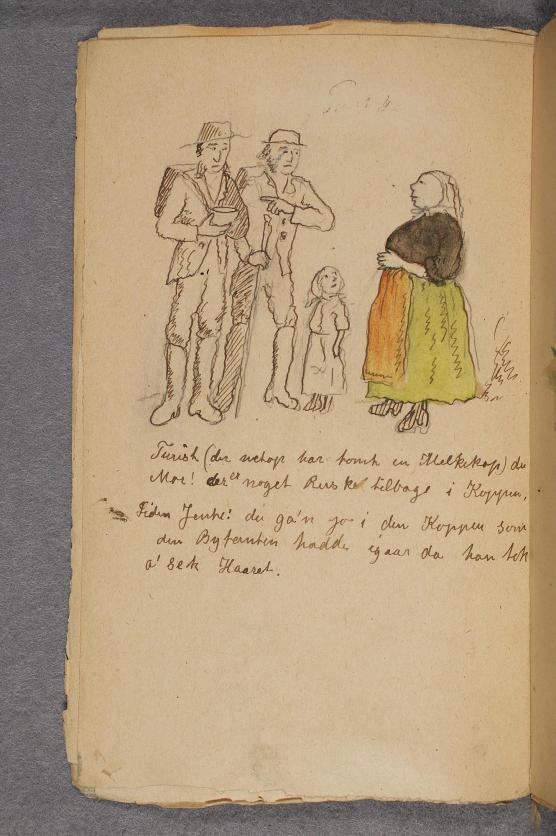 Turist (der netop har tømt en Melkekop) du
Mor! der er noget Rusk tilbage i Koppen.
Liden Jente: du ga'n jo i den Koppen som
den Bytanten hadde igaar da han tok
a' sek Haaret.